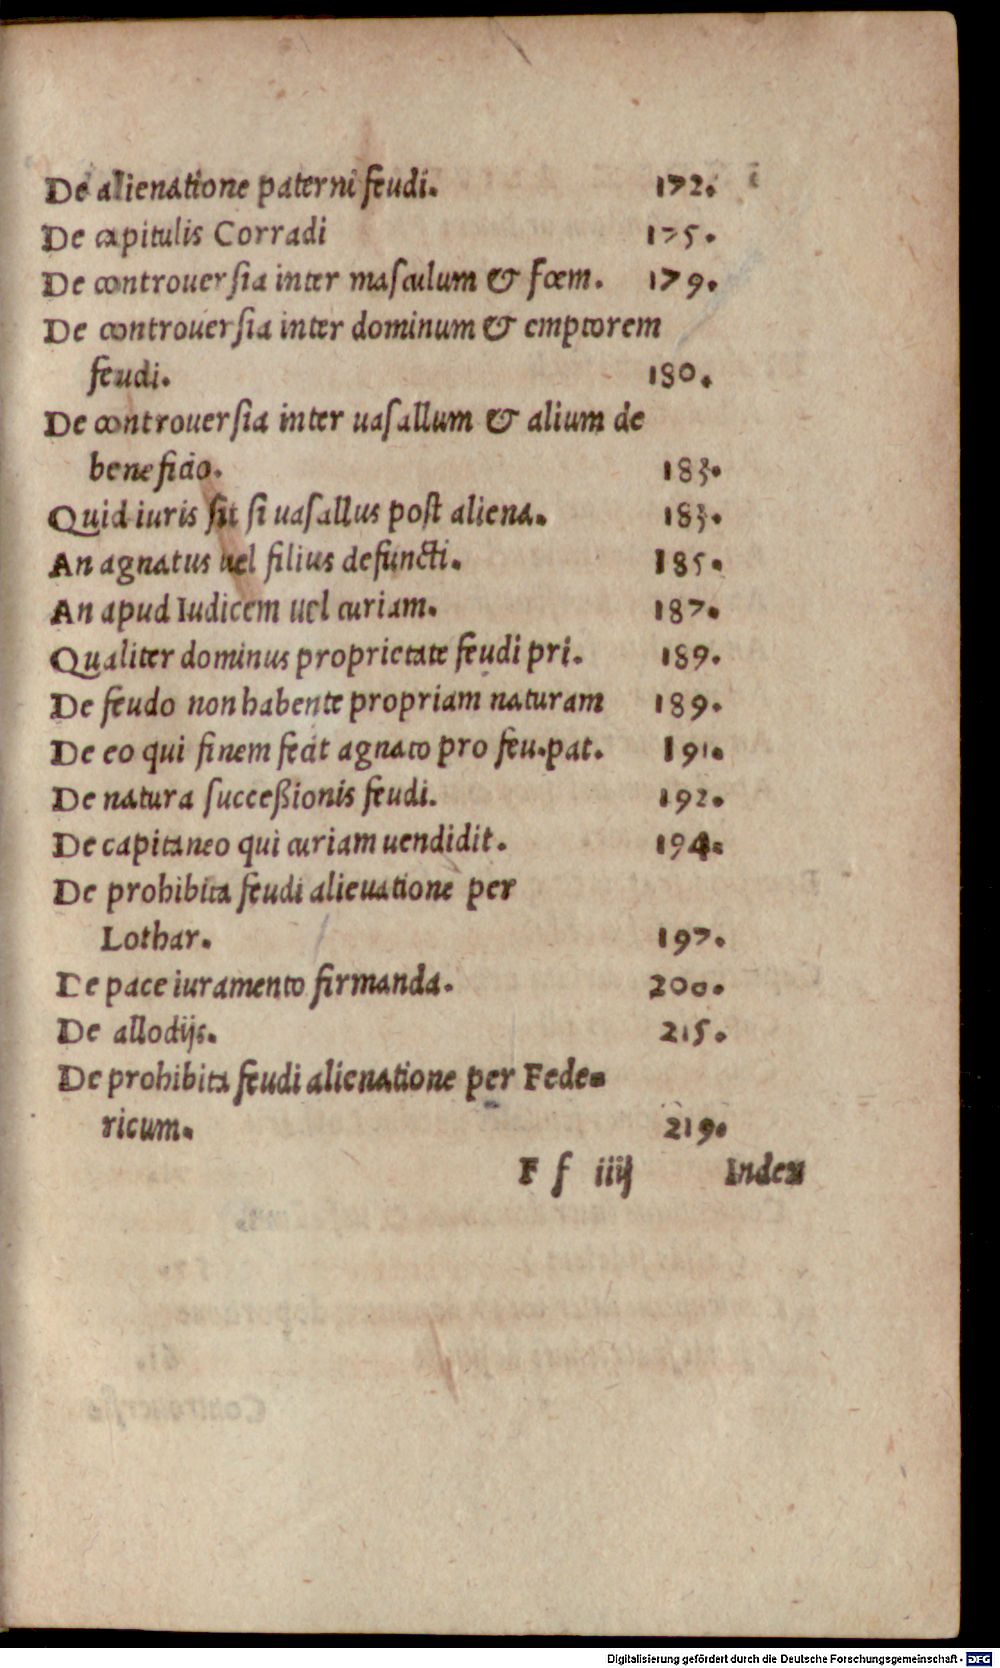 De alienatione paterni feudi. 172.
De capitulis Corradi 175.
De controuersia inter masculum & fœm. 179.
De controuersia inter dominum & emptorem
feudi. 180.
De controuersia inter uasallum & alium de
beneficio. 183.
Quid iuris sit si uasallus post aliena. 183.
An agnatus uel filius defuncti. 185.
An apud Iudicem uel curiam. 187.
Qualiter dominus proprietate feudi pri. 189.
De feudo non habente propriam naturam 189.
De eo qui finem fecit agnato pro feu.pat. 191.
De natura succeßionis feudi. 192.
De capitaneo qui curiam uendidit. 194.
De prohibita feudi alieuatione per
Lothar. 197.
De pace iuramento firmanda. 200.
De allodijs. 215.
De prohibita feudi alienatione per Fede-
ricum. 219.
F f iiij Index
Digitalisierung gefördert durch die Deutsche Forschungsgemeinschaft - DFG